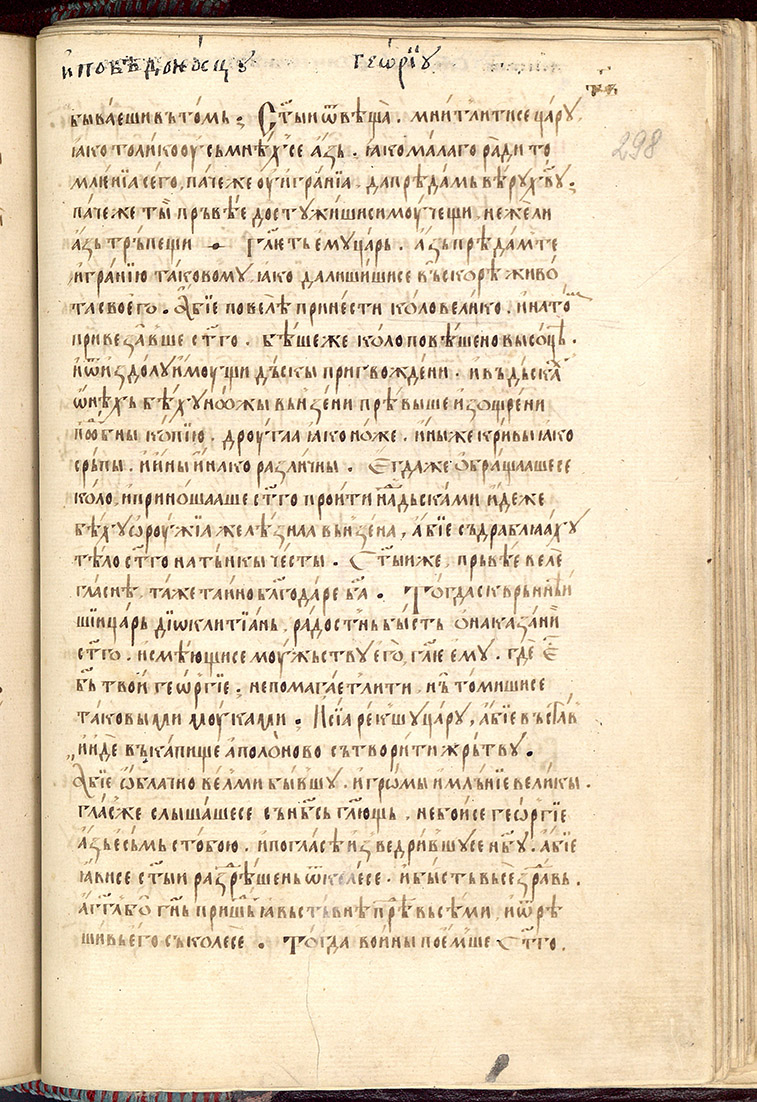 и҆ побѣдоно́сцу геѡ́рїꙋ
быва́еши въ то́мь ; Ст҃ыи ѿвѣща̀ . мни́т ли ти се ца́рꙋ ,
298
ꙗ҆́ко толи́ко оу҆сьмнѣ́х се а҆́зь . ꙗ҆́ко ма́лаго ра́ди то
мле́нїа сего̀ , па́че же оу҆ игра́нїа . да прѣда́мь вѣ́рꙋ х҃вꙋ ;
па́че же ты̀ прь́вѣе достꙋжи́ши си моу́чещи , не́жели
а҆́зь трь́пещи . Гл҃еть е҆мꙋ ца́рь . а҆́зь прѣда́м те
игра́нїю тако́вомꙋ ꙗ҆́ко да лиши́ши се въско́рѣ живо́
та своего̀ . А҆́бїе повелѣ̀ прине́сти ко́ло вели́ко . и҆ на то́м
приве́завше ст҃го . бѣ́ше же ко́ло повѣ́шено высоцѣ̀ .
и҆ ѿ и҆здо́лꙋ и҆мꙋ́щи дь́скы пригвожде́ни . и҆ въ дьска́х
ѡ҆нѣ́хь бѣ́хꙋ но́жы вьнꙁе́ни прѣвы́ше изощре́ни
подо́бны ко́пїю . дроу́гаа ꙗ҆́ко но́же . и҆́ны же кри́вы ꙗ҆́ко
срь́пы . и҆ и҆́ны и҆на́ко разли́чны . Е҆гда́ же ѡ҆браща́аше се
ко́ло , и҆ прино́шааше ст҃го проити на́дь ска́ми и҆де́же
бѣ́хꙋ ѡ҆рꙋ́жїа желѣ́знаа вьнзе́на , а҆́бїе съдра́блꙗахꙋ
тѣ́ло ст҃го на тьнкы че́сты . Ст҃ыи же , прь́вѣе ве́ле
гла́снѣ , та́же та́ино благода́ре б҃а . Тогда̀ скврь́ннѣи
шїи ца́рь дїѡклитїа́нь , ра́достнь бы́сть ѡ҆ наказа́ни
ст҃го . и҆ смѣю́щи се моу́жьствꙋ е҆го̀ , гл҃е е҆мꙋ . гдѐ є҆
б҃ь тво́и геѡ́ргїе . не помага́ет ли ти . нь̀ томи́ши се
тако́выми моу́ками . И҆ сїа̀ ре́кшꙋ ца́рꙋ , а҆́бїе въста́в
и҆́нде въ ка́пище а҆поло́ново сътвори́ти жрь́твꙋ .
А҆́бїе ѡ҆́блачно ве́лми бы́вшꙋ . и҆ гро́мы и҆ мль́нїе вели́кы .
гла́с же слы́шаше се съ нб҃съ гл҃ющь . не бо́и се геѡ́ргїе
а҆́зь е҆сь́мь с тобо́ю . и҆ по гла́сѣ и҆зведри́вшꙋ се нб҃ꙋ . а҆́бїе
ꙗ҆ви́ се ст҃ыи разрѣше́нь ѿ ко́лесе . и҆ бы́сть вь́се здра́вь .
а҆гг҃ль бо̀ гн҃ь прише́дь ꙗ҆вьствьнѣ прѣ́д въсѣ́ми , и҆ ѿрѣ
шивь е҆го̀ съ ко́лесе . Тогда̀ во́ины пое́мше Ст҃го .